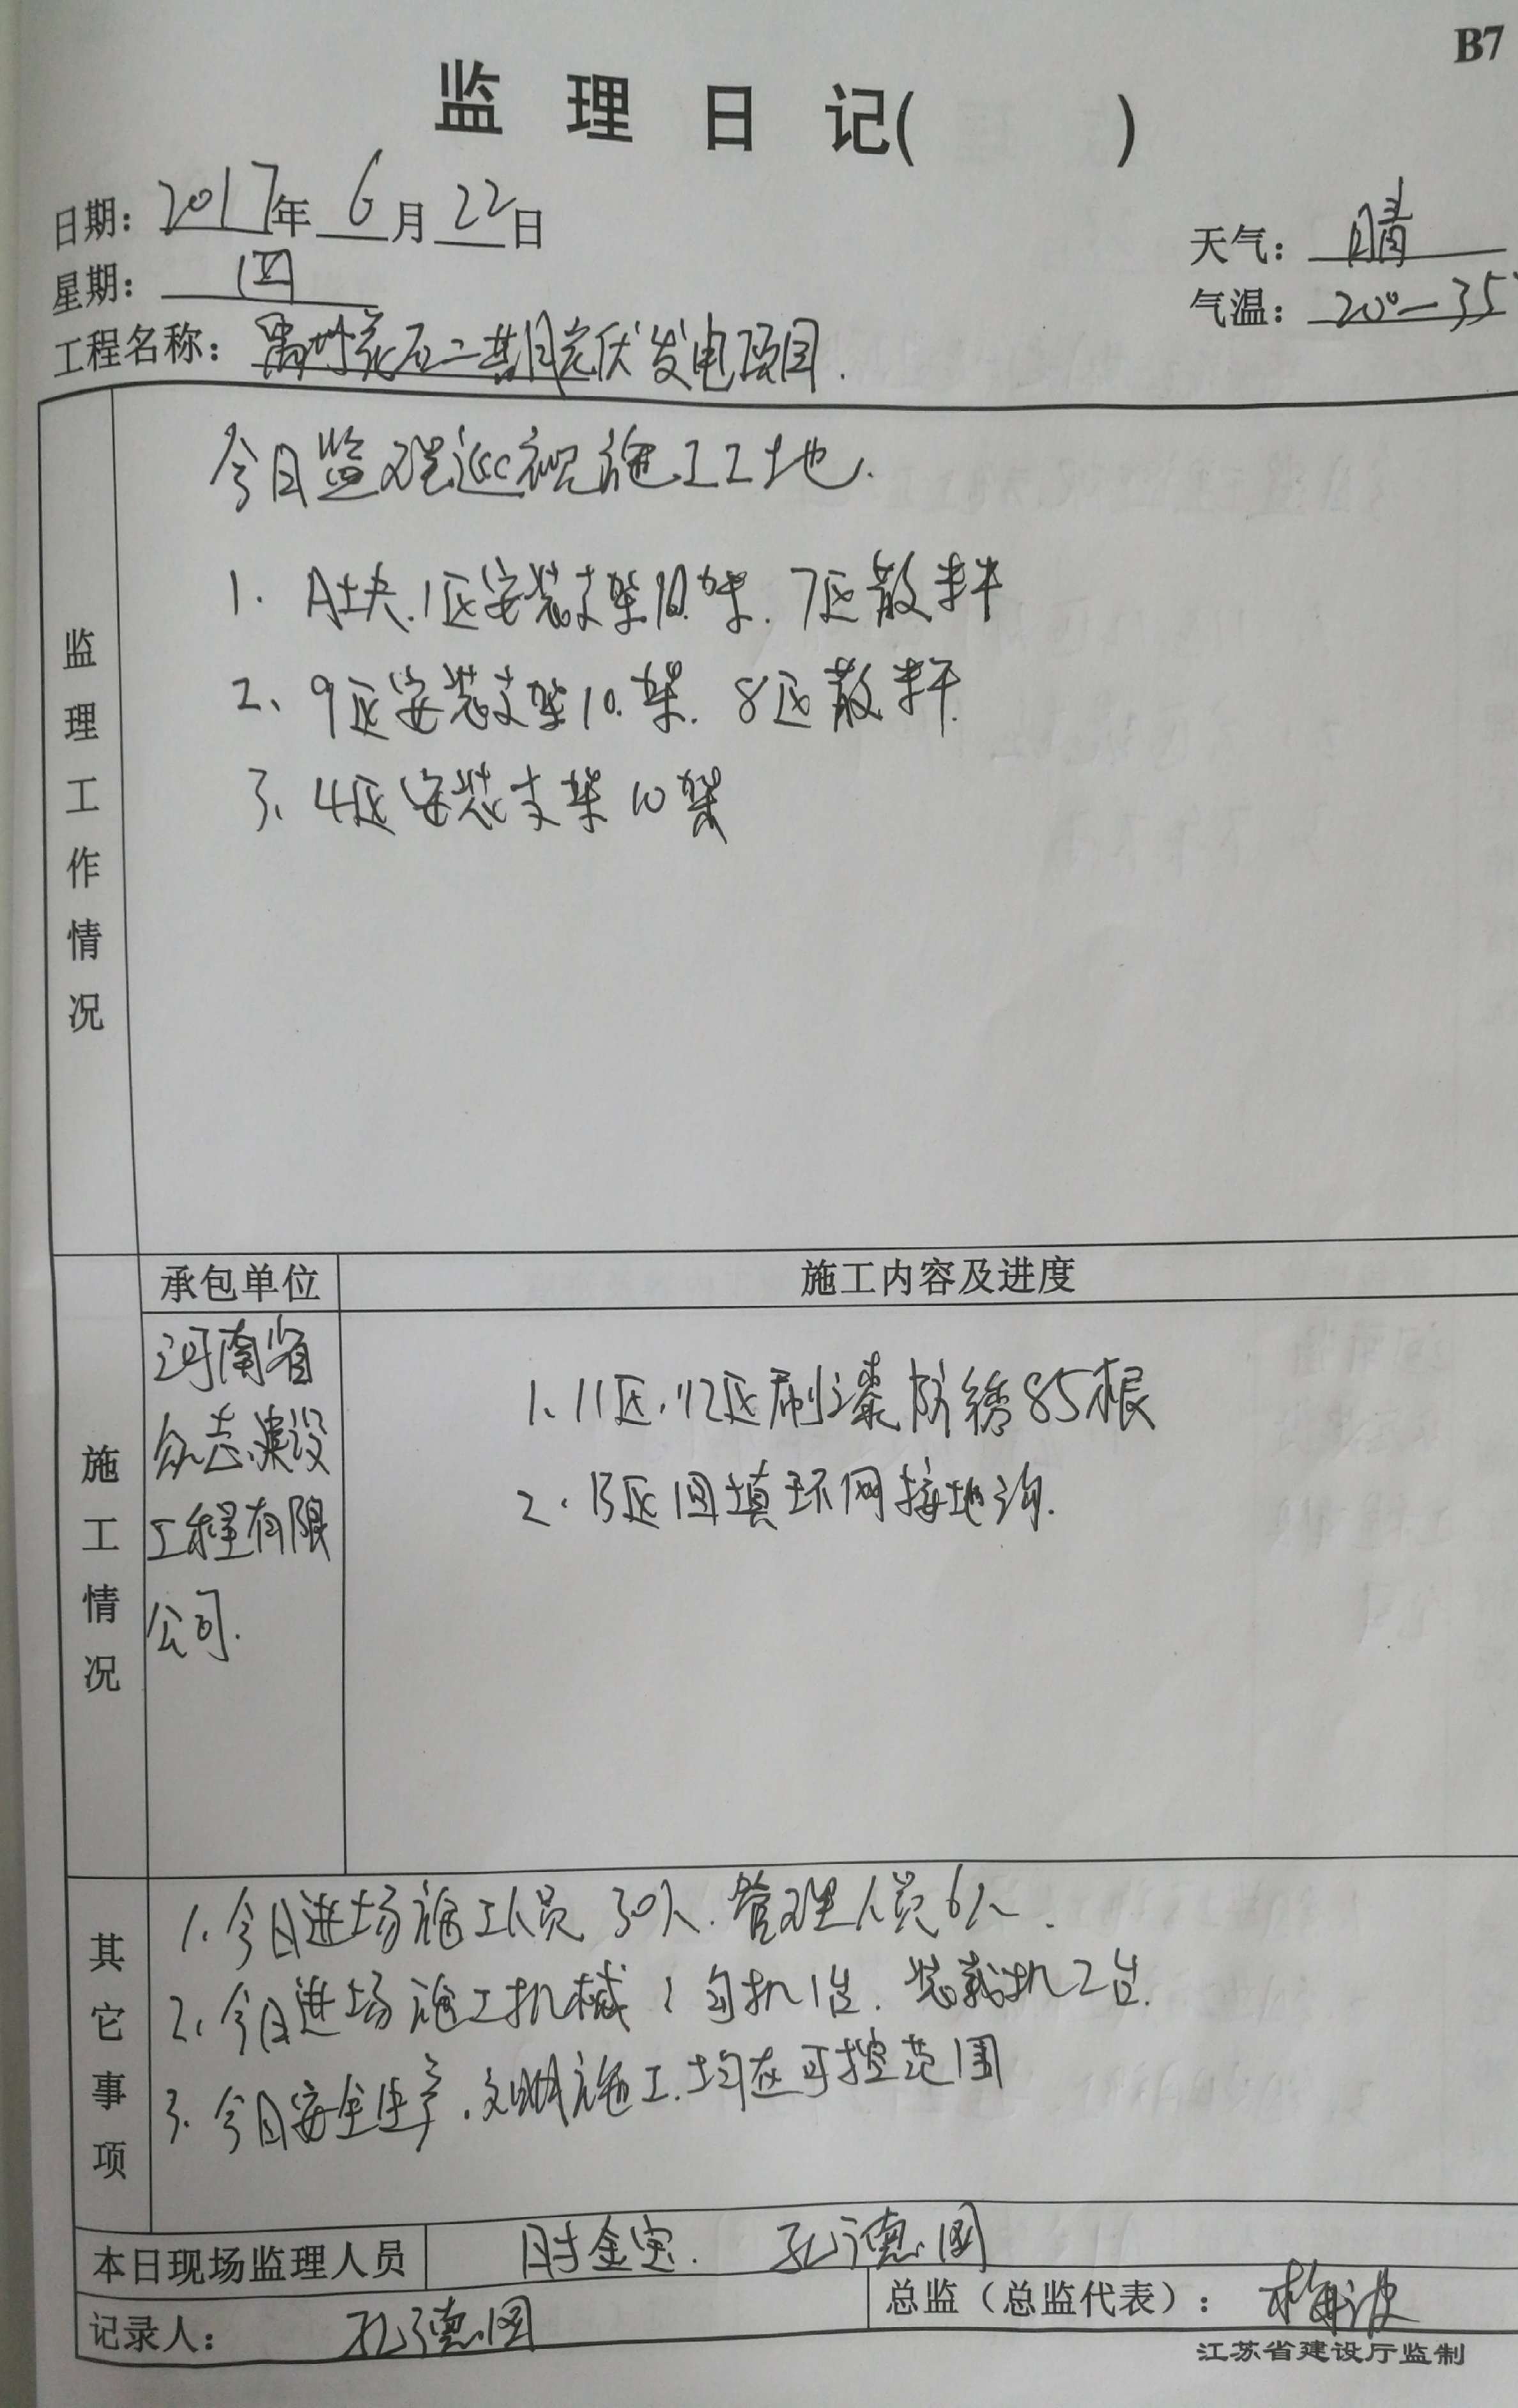 B7
监 理 日 记( )
日期: 2017年 6月 22日
天气: 晴
星期: 四
气温: 20°-35°
工程名称: 禹州苌石二期光伏发电项目.
监理工作情况
今日监理巡视施工工地.
1. A块.1区安装支架10.架. 7区散料
2、9区安装支架10.架. 8区散料.
3、4区安装支架10架
施工情况
承包单位
施工内容及进度
河南省
众志建设
工程有限
公司.
1、11区、12区刷漆防锈85根
2、13区回填环网接地沟.
其它事项
1、今日进场施工人员 30人. 管理人员6人.
2、今日进场施工机械: 勾机1台. 装载机2台.
3、今日安全生产.文明施工.均在可控范围
本日现场监理人员
金宝. 孔德国
记录人: 孔德国
总监(总监代表): 梅波
江苏省建设厅监制